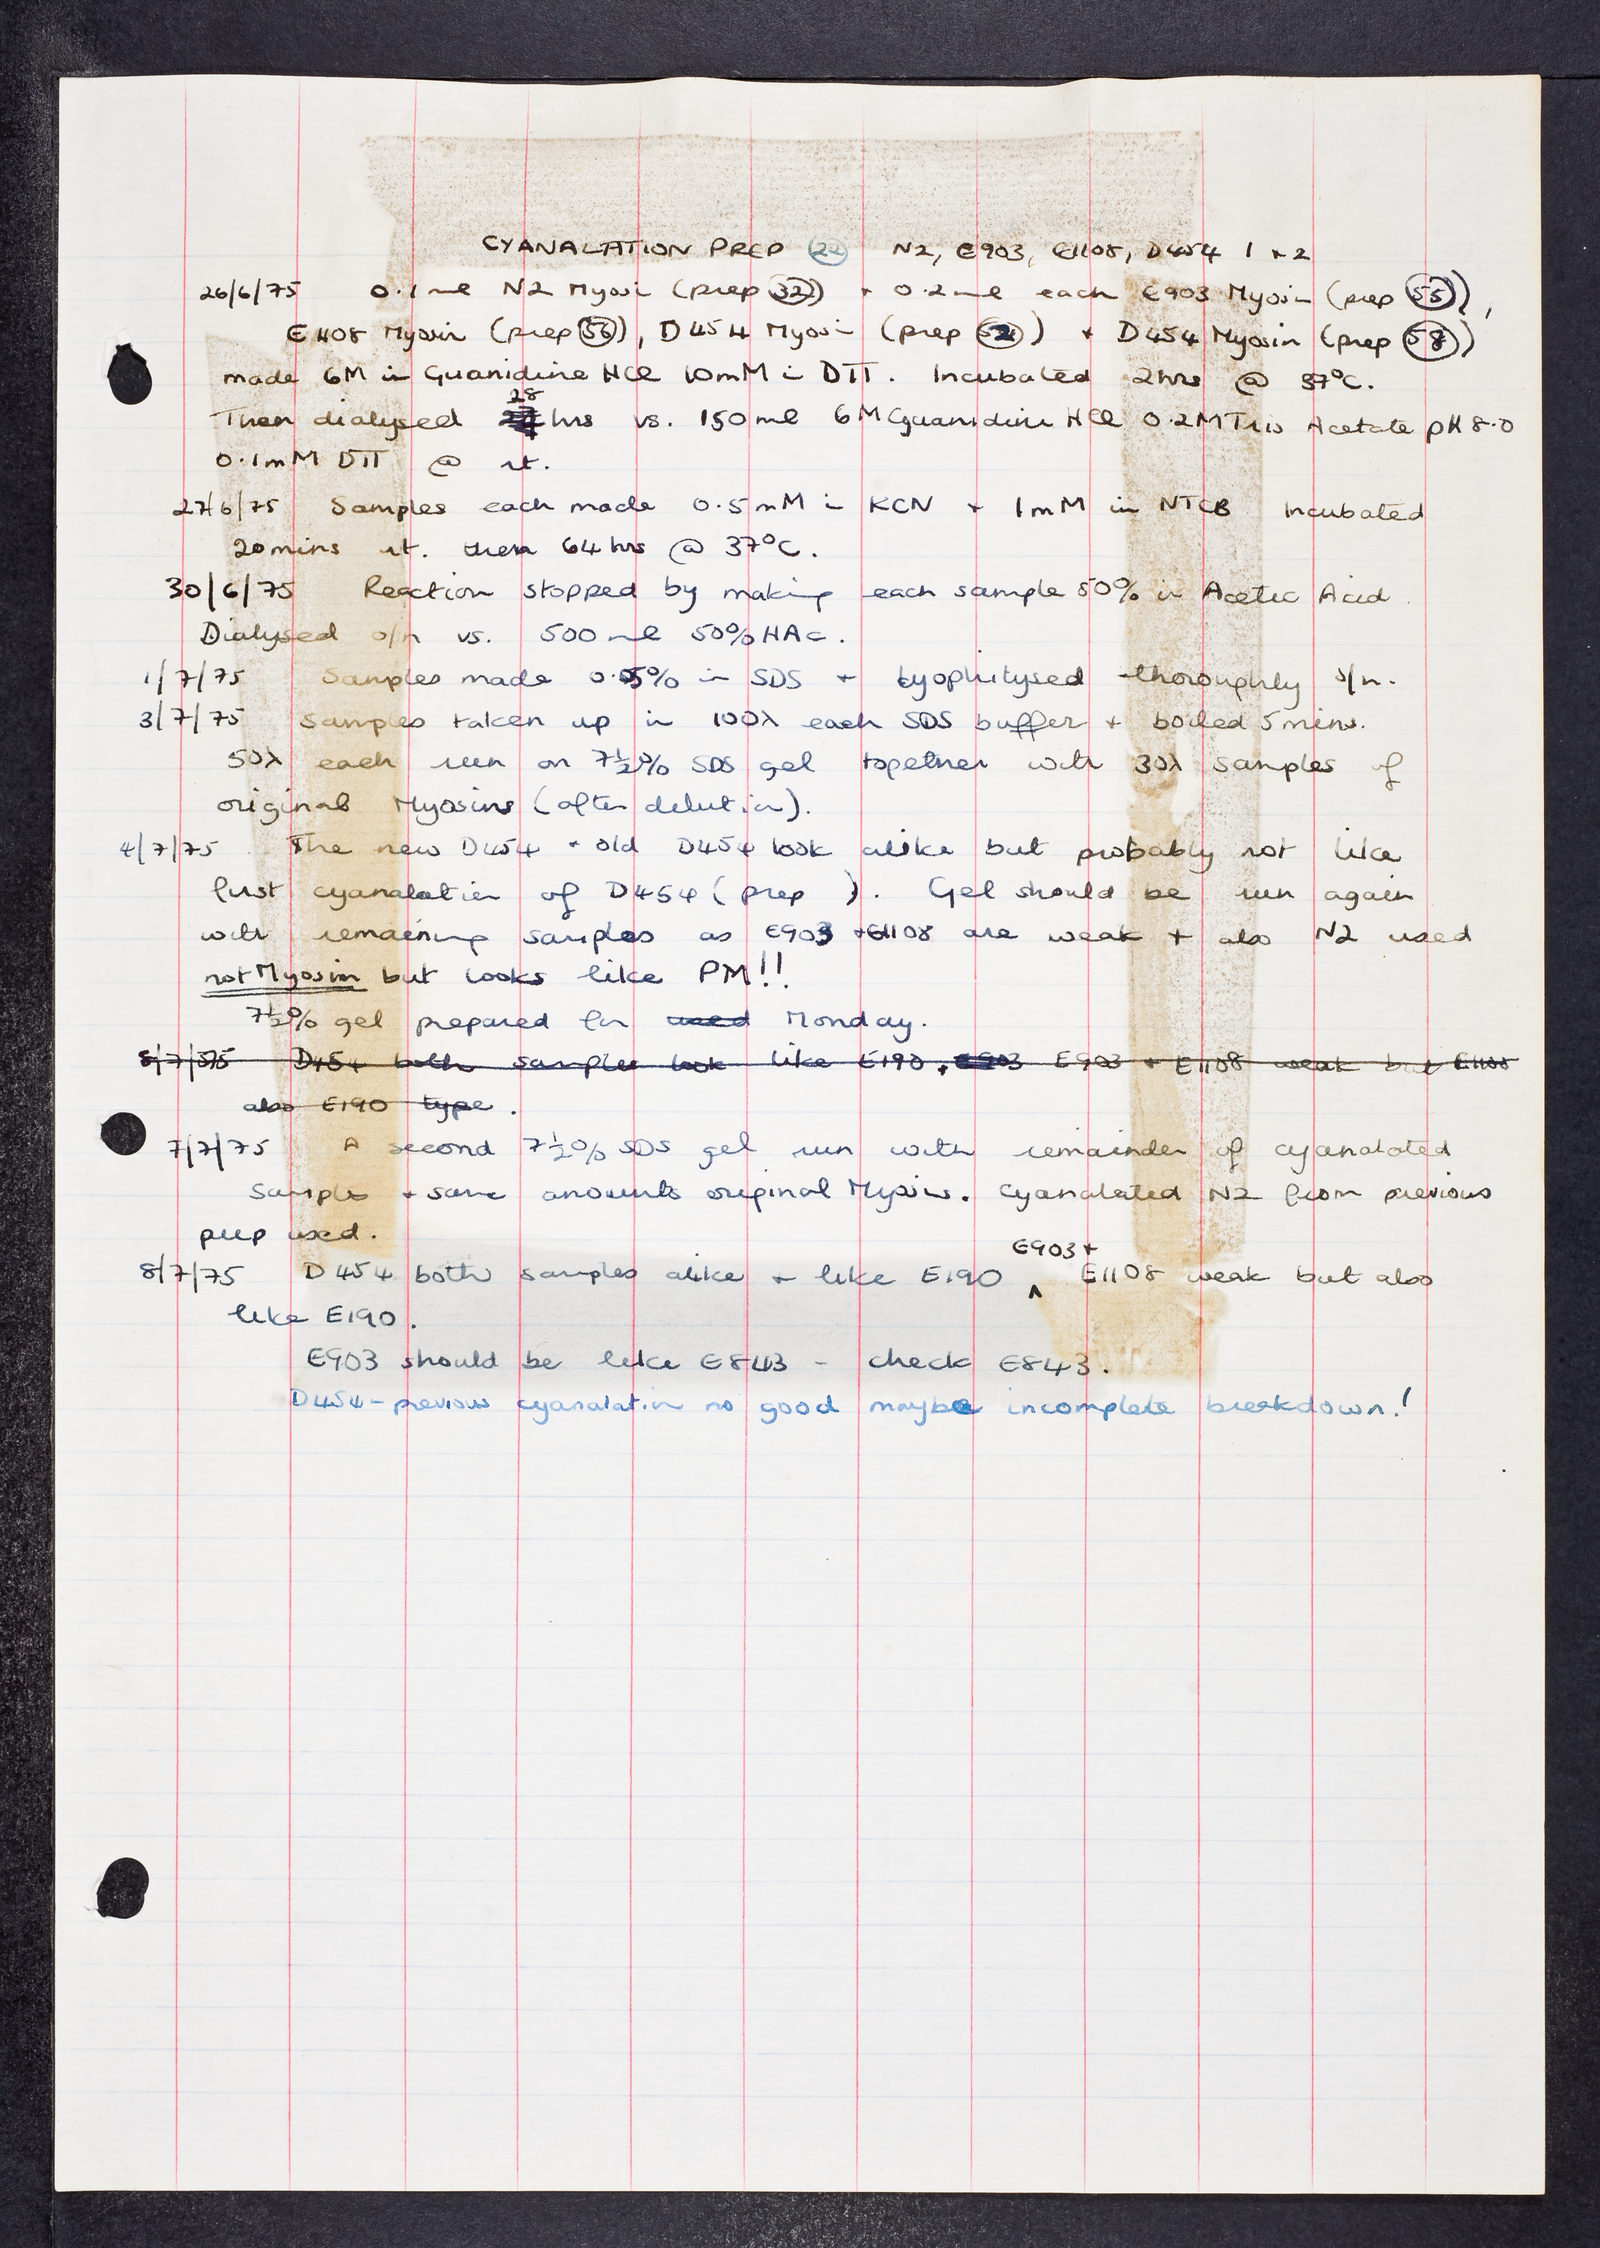 CYANALATION PREP (22) N2, E903, E1108, D454 1 + 2
26/6/75 0.1ml N2 Myosin (prep (32)) + 0.2ml each E903 Myosin (prep (55)),
E1108 Myosin (prep (56)), D454 Myosin (prep (52)) + D454 Myosin (prep (58))
made 6M in Guanidine HCl 10mM in DTT. Incubated 2hrs @ 37°C.
28
Then dialysed hrs vs. 150ml 6M Guanidine HCl 0.2M Tris Acetate pH 8.0
0.1mM DTT @ rt.
27/6/75 Samples each made 0.5mM in KCN + 1mM in NTCB Incubated
20mins rt. then 64hrs @ 37°C.
30/6/75 Reaction stopped by making each sample 50% in Acetic Acid.
Dialysed o/n vs. 500ml 50% HAc.
1/7/75 Samples made 0.05% in SDS + lyophilysed thoroughly o/n.
3/7/75 Samples taken up in 100λ each SDS buffer + boiled 5mins.
50λ each run on 7½% SDS gel together with 30λ samples of
original Myosins (after dilution).
4/7/75 The new D454 + old D454 look alike but probably not like
first cyanalation of D454 (prep ). Gel should be run again
with remaining samples as E903 + E1108 are weak + also N2 used
not Myosin but looks like PM!!
7½% gel prepared for used Monday.
8/7/75 D454 both samples look like E190. E903 E903 + E1108 weak but E1108
also E190 type.
7/7/75 A second 7½% SDS gel run with remainder of cyanalated
samples + same amounts original Myosins. Cyanalated N2 from previous
prep used.
E903 +
8/7/75 D454 both samples alike + like E190 ^ E1108 weak but also
like E190.
E903 should be like E843 - check E843.
D454 - previous cyanalation no good maybe incomplete breakdown!